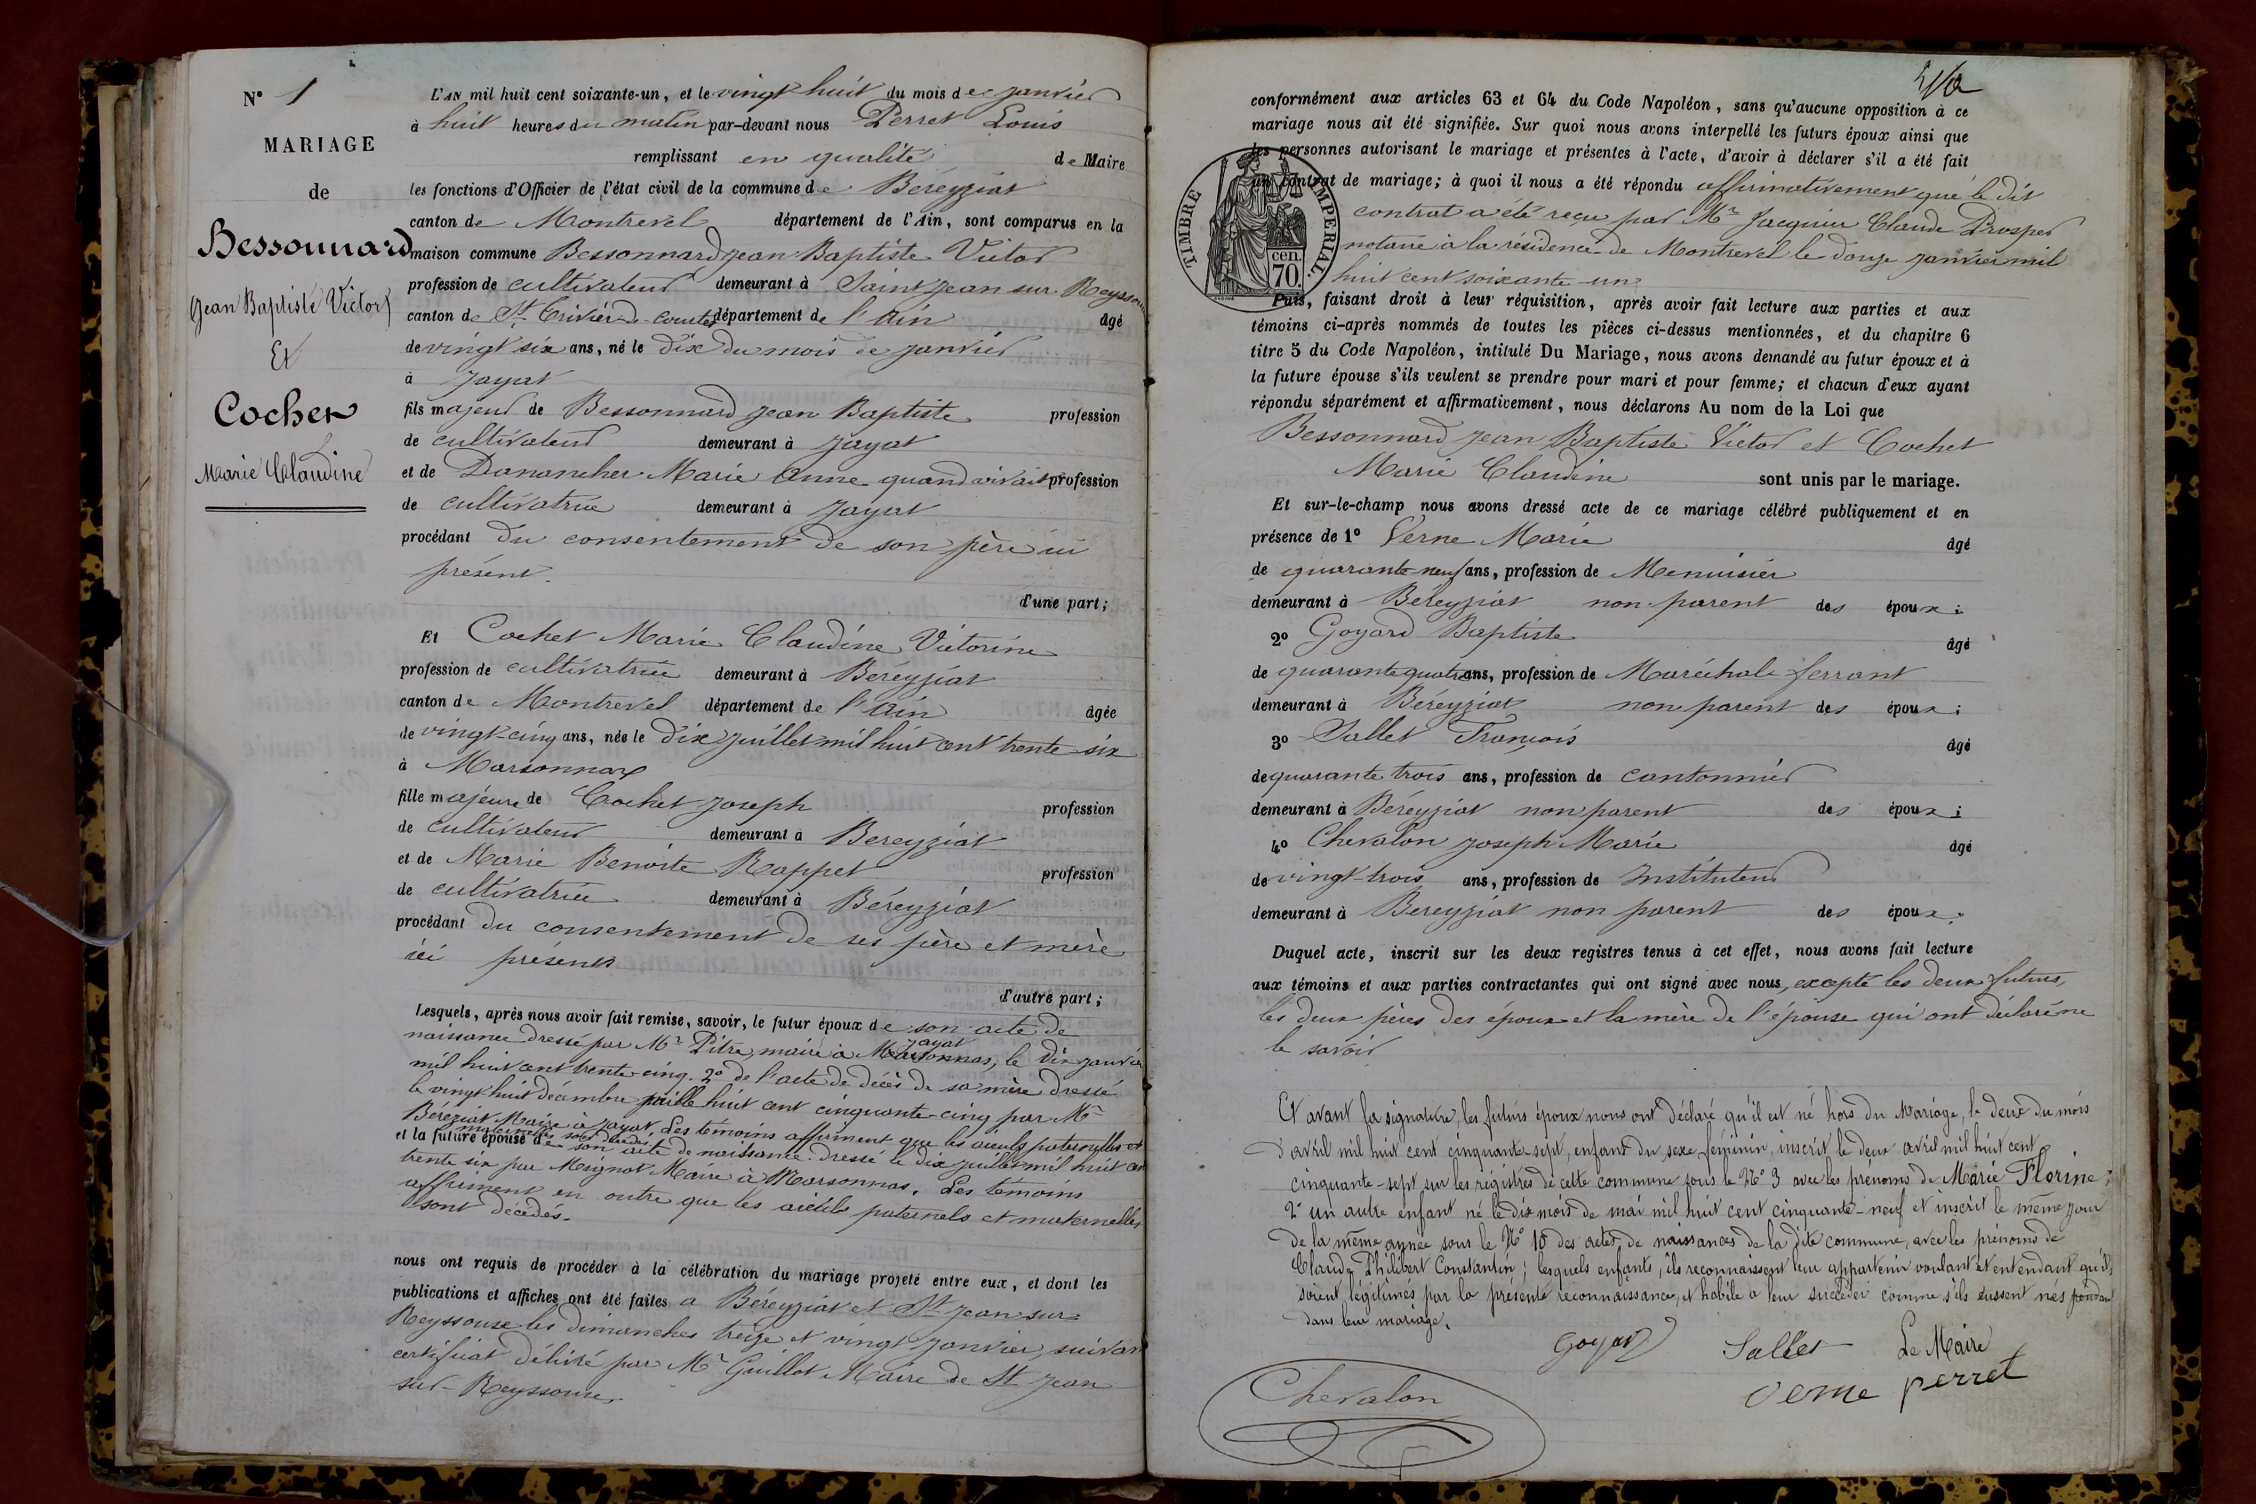 N° 1
MARIAGE
de
Bessonnard
Jean Baptiste Victor
Et
Cochet
Marie Claudine
L'AN mil huit cent soixante-un, et le vingt huit du mois de janvier
à huit heures du matin par-devant nous Perret Louis
remplissant en qualité de Maire
les fonctions d'Officier de l'état civil de la commune de Béreyziat
canton de Montrevel département de l'Ain, sont comparus en la
maison commune Bessonnard Jean Baptiste Victor
profession de cultivateur demeurant à Saint Jean sur Reyssouze
canton de St Trivier de Courtes département de l'Ain âgé
de vingt six ans, né le dix du mois de janvier
à Jayat
fils majeur de Bessonnard Jean Baptiste profession
de cultivateur demeurant à Jayat
et de Danancher Marie Anne quand vivait profession
de cultivatrice demeurant à Jayat
procédant du consentement de son père ici
présent.
d'une part;
Et Cochet Marie Claudine Victorine
profession de cultivatrice demeurant à Béreyziat
canton de Montrevel département de l'Ain âgée
de vingt-cinq ans, née le dix juillet mil huit cent trente six
à Marsonnax
fille majeure de Cochet Joseph profession
de cultivateur demeurant à Bereyziat
et de Marie Benoite Rappet profession
de cultivatrice demeurant à Béreyziat
procédant du consentement de ses père et mère
ici présents
d'autre part;
Lesquels, après nous avoir fait remise, savoir, le futur époux de son acte de
naissance dressé par Mr Pitre, maire à Marsonnas, Jayat le dix janvier
mil huit cent trente-cinq. 2° de l'acte de décès de sa mère dressé
le vingt huit décembre mille huit cent cinquante-cinq par Mr
Béréziat Maire à Jayat. Les témoins affirment que les aieuls paternelles et
maternelles sont décédés.
et la future épouse de son acte de naissance dressé le dix juillet mil huit cent
trente six par Meignot Maire à Marsonnas. Les témoins
affirment en outre que les aieuls paternels et maternelles
sont décédés.
nous ont requis de procéder à la célébration du mariage projeté entre eux, et dont les
publications et affiches ont été faites a Béreyziat et St Jean sur
Reyssouze les dimanches treize et vingt janvier, suivant
certificat délivré par Mr Guillot Maire de St Jean
sur-Reyssouze.
conformément aux articles 63 et 64 du Code Napoléon, sans qu'aucune opposition à ce
mariage nous ait été signifiée. Sur quoi nous avons interpellé les futurs époux ainsi que
les personnes autorisant le mariage et présentes à l'acte, d'avoir à déclarer s'il a été fait
un contrat de mariage; à quoi il nous a été répondu affirmativement que le dit
contrat a été reçu par Mr Jacquier Claude Prosper
notaire à la résidence de Montrevel le douze janvier mil
huit cent soixante un
TIMBRE IMPERIAL.
cen.
70.
Puis, faisant droit à leur réquisition, après avoir fait lecture aux parties et aux
témoins ci-après nommés de toutes les pièces ci-dessus mentionnées, et du chapitre 6
titre 5 du Code Napoléon, intitulé Du Mariage, nous avons demandé au futur époux et à
la future épouse s'ils veulent se prendre pour mari et pour femme; et chacun d'eux ayant
répondu séparément et affirmativement, nous déclarons Au nom de la Loi que
Bessonnard Jean Baptiste Victor et Cochet
Marie Claudine sont unis par le mariage.
Et sur-le-champ nous avons dressé acte de ce mariage célébré publiquement et en
présence de 1° Verne Marie âgé
de quarante-neuf ans, profession de Menuisier
demeurant à Bereyziat non parent des époux;
2° Goyard Baptiste âgé
de quarante quatre ans, profession de Maréchale ferrant
demeurant à Béreyziat non parent des époux;
3° Sallet François âgé
de quarante trois ans, profession de cantonnier
demeurant à Béreyziat non parent des époux;
4° Chevalon Joseph Marie âgé
de vingt-trois ans, profession de Instituteur
demeurant à Bereyziat non parent des époux.
Duquel acte, inscrit sur les deux registres tenus à cet effet, nous avons fait lecture
aux témoins et aux parties contractantes qui ont signé avec nous, excepté les deux futurs,
les deux pères des époux et la mère de l'épouse qui ont déclaré ne
le savoir
Et avant la signature, les futurs époux nous ont déclaré qu'il est né hors du Mariage, le deux du mois
d'avril mil huit cent cinquante-sept, enfant du sexe féminin, inscrit le deux avril mil huit cent
cinquante-sept sur les régistres de cette commune sous le N° 3 avec les prénoms de Marie Florine;
2° un autre enfant né le dix mois de mai mil huit cent cinquante-neuf et inscrit le même jour
de la même année sous le N° 10 des actes de naissances de la dite commune, avec les prénoms de
Claude Philibert Constantin; lesquels enfants, ils reconnaissent leur appartenir voulant et entendant qu'ils
soient légitimés par la présente reconnaissance, et habile a leur succéder comme s'ils eussent nés pendant
dans leur mariage.
Goyard Sallet Le Maire
Chevalon Verne perret